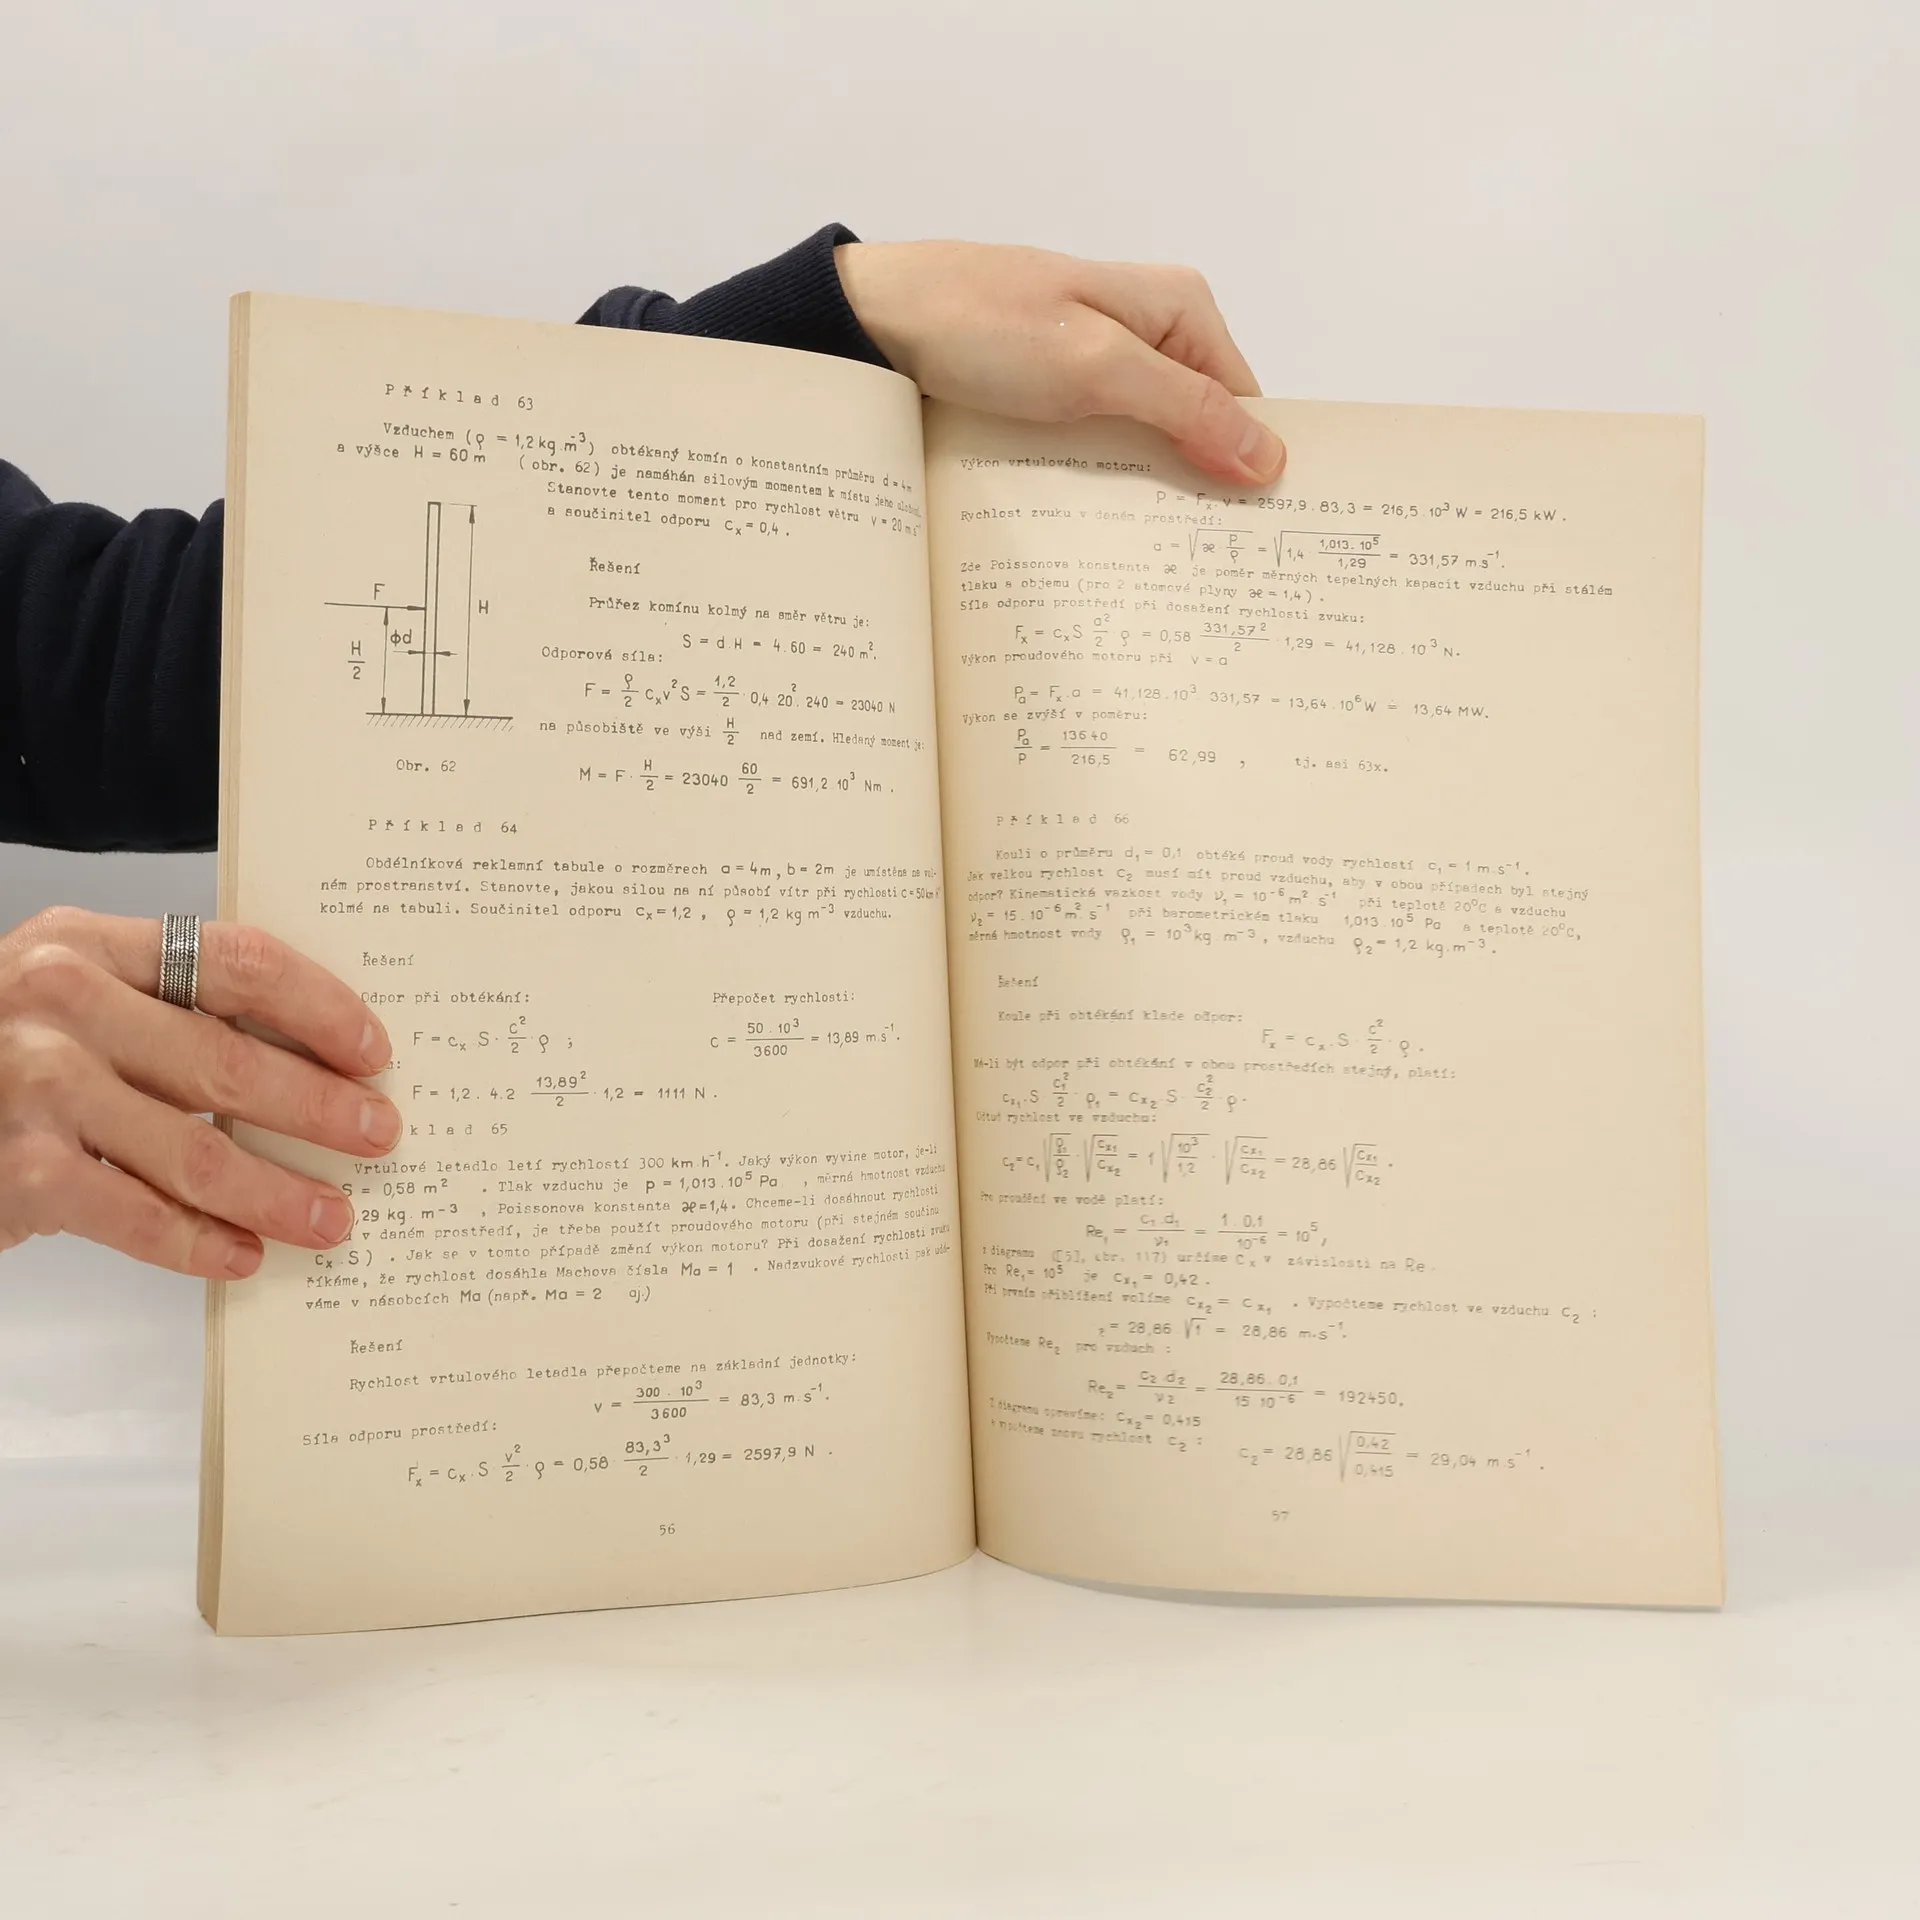 Příklad 63
Vzduchem (ρ = 1,2 kg.m⁻³) obtékaný komín o konstantním průměru d = 4m
a výšce H = 60 m (obr. 62) je namáhán silovým momentem k místu jeho
Stanovte tento moment pro rychlost větru v = 20 m s⁻¹
a součinitel odporu cₓ = 0,4 .
Řešení
Průřez komínu kolmý na směr větru je:
S = d.H = 4.60 = 240 m².
Odporová síla:
F = ρ/2 cₓv²S = 1,2/2 . 0,4 . 20² . 240 = 23040 N
na působiště ve výši H/2 nad zemí. Hledaný moment je:
M = F . H/2 = 23040 60/2 = 691,2 10³ Nm .
F
H
ϕd
H/2
Obr. 62
Příklad 64
Obdélníková reklamní tabule o rozměrech a = 4m , b = 2m je umístěna na vol-
ném prostranství. Stanovte, jakou silou na ní působí vítr při rychlosti c = 50 km h⁻¹
kolmé na tabuli. Součinitel odporu cₓ = 1,2 , ρ = 1,2 kg m⁻³ vzduchu.
Řešení
Odpor při obtékání: Přepočet rychlosti:
F = cₓ . S . c²/2 . ρ ; c = 50 . 10³/3600 = 13,89 m.s⁻¹.
F = 1,2 . 4.2 13,89²/2 . 1,2 = 1111 N .
klad 65
Vrtulové letadlo letí rychlostí 300 km h⁻¹. Jaký výkon vyvine motor, je-li
S = 0,58 m² . Tlak vzduchu je p = 1,013 . 10⁵ Pa , měrná hmotnost vzduchu
,29 kg . m⁻³ , Poissonova konstanta æ = 1,4. Chceme-li dosáhnout rychlosti
v daném prostředí, je třeba použít proudového motoru (při stejném součinu
cₓ . S ) . Jak se v tomto případě změní výkon motoru? Při dosažení rychlosti zvuku
říkáme, že rychlost dosáhla Machova čísla Ma = 1 . Nadzvukové rychlosti pak udá-
váme v násobcích Ma (např. Ma = 2 aj.)
Řešení
Rychlost vrtulového letadla přepočteme na základní jednotky:
v = 300 . 10³/3600 = 83,3 m.s⁻¹.
Síla odporu prostředí:
Fₓ = cₓ . S v²/2 . ρ = 0,58 . 83,3³/2 . 1,29 = 2597,9 N .
56
Výkon vrtulového motoru:
P = Fₓ . v = 2597,9 . 83,3 = 216,5 . 10³ W = 216,5 kW .
Rychlost zvuku v daném prostředí:
a = √(æ p/ρ) = √(1,4 1,013 . 10⁵/1,29) = 331,57 m.s⁻¹.
Zde Poissonova konstanta æ je poměr měrných tepelných kapacit vzduchu při stálém
tlaku a objemu (pro 2 atomové plyny æ = 1,4) .
Síla odporu prostředí při dosažení rychlosti zvuku:
Fₓ = cₓ S a²/2 ρ = 0,58 331,57²/2 . 1,29 = 41,128 . 10³ N.
Výkon proudového motoru při v = a
Pₐ = Fₓ . a = 41,128 . 10³ . 331,57 = 13,64 . 10⁶ W = 13,64 MW.
Výkon se zvýší v poměru:
Pₐ/P = 13640/216,5 = 62,99 , tj. asi 63x.
Příklad 66
Kouli o průměru d₁ = 0,1 obtéká proud vody rychlostí c₁ = 1 m.s⁻¹.
Jak velkou rychlost c₂ musí mít proud vzduchu, aby v obou případech byl stejný
odpor? Kinematická vazkost vody ν₁ = 10⁻⁶ m² s⁻¹ při teplotě 20°C a vzduchu
ν₂ = 15 . 10⁻⁶ m² s⁻¹ při barometrickém tlaku 1,013 . 10⁵ Pa a teplotě 20°C,
měrná hmotnost vody ρ₁ = 10³ kg m⁻³, vzduchu ρ₂ = 1,2 kg.m⁻³ .
Řešení
Koule při obtékání klade odpor:
Fₓ = cₓ . S . c²/2 . ρ .
Má-li být odpor při obtékání v obou prostředích stejný, platí:
cₓ₁ . S c₁²/2 . ρ₁ = cₓ₂ S c₂²/2 . ρ.
Odtud rychlost ve vzduchu:
c₂ = c₁ √(ρ₁/ρ₂) . √(cₓ₁/cₓ₂) = 1 √(10³/1,2) . √(cₓ₁/cₓ₂) = 28,86 √(cₓ₁/cₓ₂) .
Pro proudění ve vodě platí:
Re₁ = c₁ . d₁/ν₁ = 1 . 0,1/10⁻⁶ = 10⁵ ,
z diagramu ([5], obr. 117) určíme cₓ v závislosti na Re .
Pro Re₁ = 10⁵ je cₓ₁ = 0,42 .
Při prvním přiblížení volíme cₓ₂ = cₓ₁ . Vypočteme rychlost ve vzduchu c₂ :
₂ = 28,86 √1 = 28,86 m.s⁻¹.
Vypočteme Re₂ pro vzduch :
Re₂ = c₂ . d₂/ν₂ = 28,86 . 0,1/15 10⁻⁶ = 192450.
Z diagramu opravíme: cₓ₂ = 0,415
a vypočteme znovu rychlost c₂ :
c₂ = 28,86 √(0,42/0,415) = 29,04 m.s⁻¹ .
57